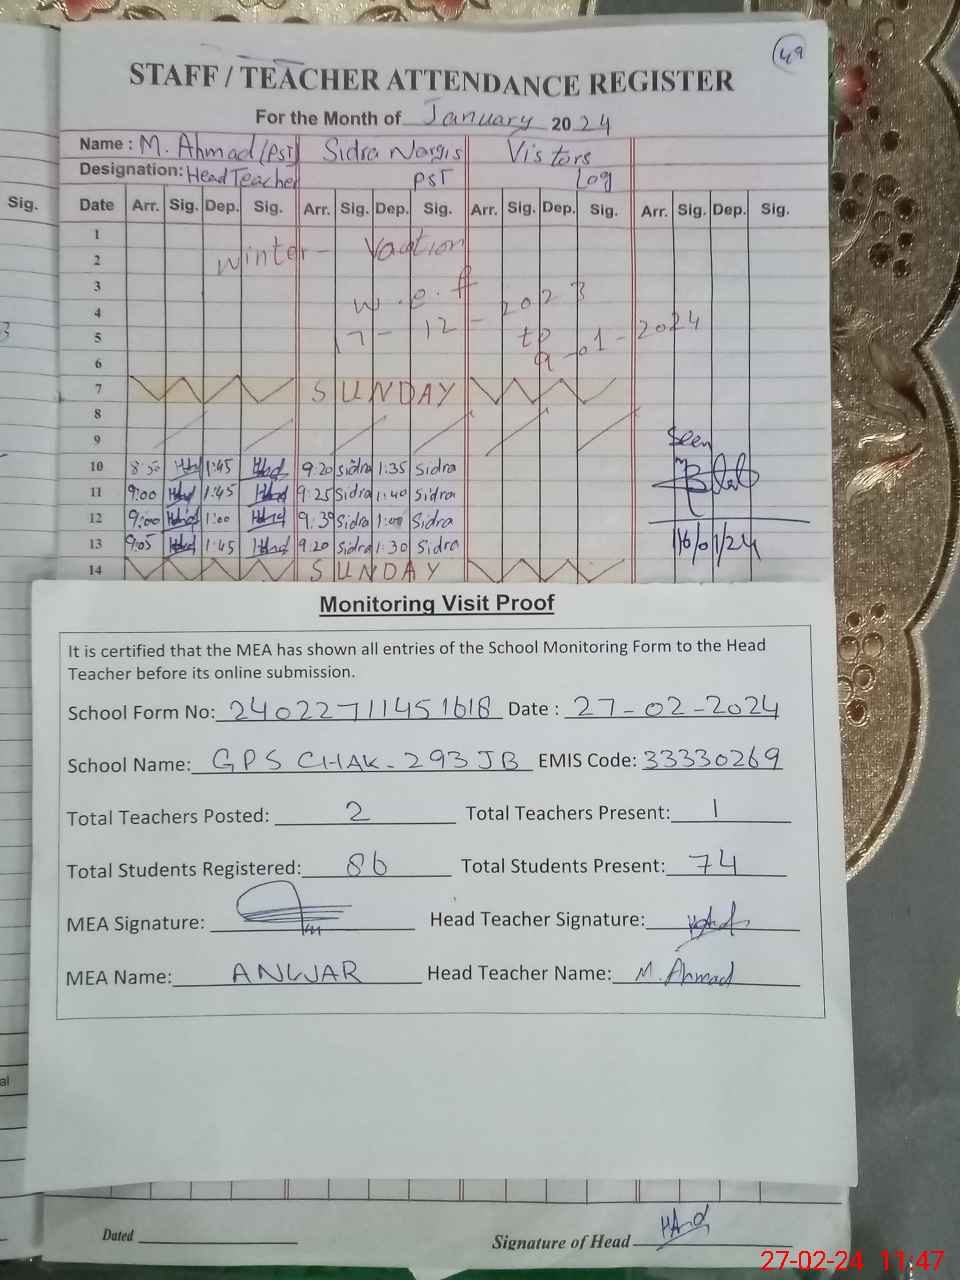 49
STAFF / TEACHER ATTENDANCE REGISTER
For the Month of January 2024
Name : M. Ahmad (PST) Sidra Nargis Vistors
Designation: Head Teacher PST Log
Sig. Date Arr. Sig. Dep. Sig. Arr. Sig. Dep. Sig. Arr. Sig. Dep. Sig. Arr. Sig. Dep. Sig.
1
2 Winter - Vaction
3 w.e.f
4 2023
5 17-12- to 9-01-2024
6
7 SUNDAY
8
9 Seen
10 8:50 1:45 9:20 Sidra 1:35 Sidra
11 9:00 1:45 9:25 Sidra 1:40 Sidra
12 9:00 1:00 9:30 Sidra 1:00 Sidra
13 9:05 1:45 9:20 Sidra 1:30 Sidra 16/01/24
14 SUNDAY
Monitoring Visit Proof
It is certified that the MEA has shown all entries of the School Monitoring Form to the Head
Teacher before its online submission.
School Form No: 240227114516 18 Date : 27-02-2024
School Name: GPS CHAK-293 JB EMIS Code: 33330269
Total Teachers Posted: 2 Total Teachers Present: 1
Total Students Registered: 86 Total Students Present: 74
MEA Signature: Head Teacher Signature:
MEA Name: ANWAR Head Teacher Name: M. Ahmad
al
Dated
Signature of Head
27-02-24 11:47